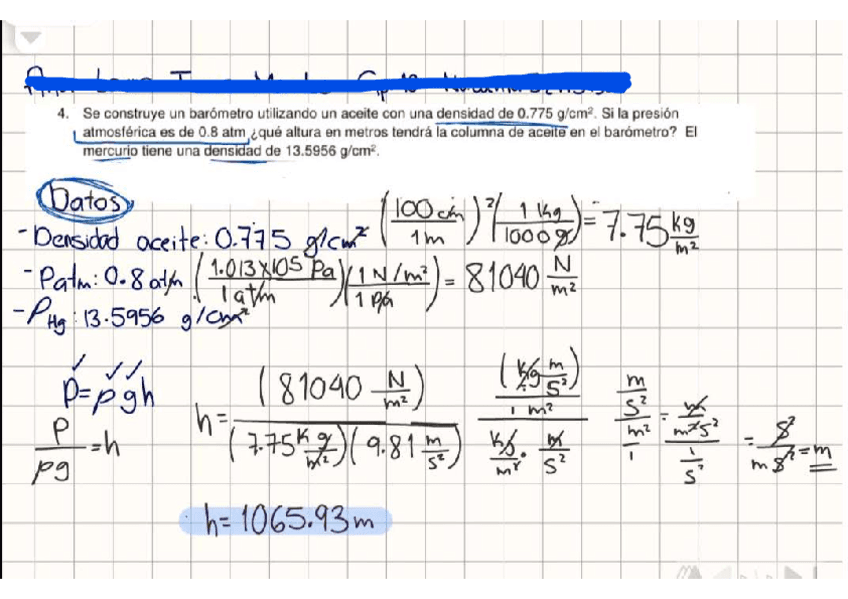 4. Se construye un barómetro utilizando un aceite con una densidad de 0.775 g/cm². Si la presión
atmosférica es de 0.8 atm ¿qué altura en metros tendrá la columna de aceite en el barómetro? El
mercurio tiene una densidad de 13.5956 g/cm².
Datos
- Densidad aceite: 0.775 g/cm² (100 cm / 1 m)² (1 kg / 1000 g) = 7.75 kg/m²
- Patm: 0.8 atm (1.013x105 Pa / 1 atm) (1 N/m² / 1 Pa) = 81040 N/m²
- ρHg: 13.5956 g/cm²
P = ρgh
P/ρg = h
h = (81040 N/m²) / (7.75 kg/m²)(9.81 m/s²) (kg m/s²) / 1 m² / kg/m² · m/s² m/s² / m² / 1 = m/m²s² / 1/s² = s²/m s² = m
h = 1065.93 m